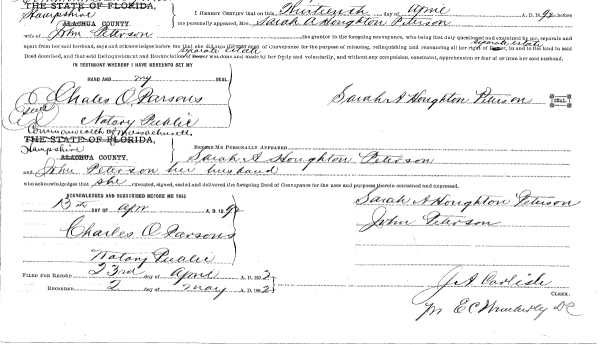 THE STATE OF FLORIDA,
Hampshire
ALACHUA COUNTY.
I HEREBY CERTIFY that on this Thirteenth day of April A. D. 1892 before
me personally appeared, Mrs. Sarah A Houghton Peterson
wife of John Peterson the grantor in the foregoing conveyance, who being first duly questioned and examined by me, separate and
apart from her said husband, says and acknowledges before me that she did
for the purpose of releasing, relinquishing and renouncing all her right of in and to the land in said
separate estate
Deed described, and that said Relinquishment and Renunciation of was done and made by her freely and voluntarily, and without any compulsion, constraint, apprehension or fear of or from her said husband.
separate estate
IN TESTIMONY WHEREOF I HAVE HEREUNTO SET MY
HAND AND my SEAL
Charles O Parsons
Seal
Notary Public
Sarah A Houghton Peterson
SEAL
Commonwealth of Massachusetts
THE STATE OF FLORIDA,
Hampshire
ALACHUA COUNTY.
BEFORE ME PERSONALLY APPEARED Sarah A Houghton Peterson
and John Peterson her husband
who acknowledges that she executed, signed, sealed and delivered the foregoing Deed of Conveyance for the uses and purposes therein contained and expressed.
ACKNOWLEDGED AND SUBSCRIBED BEFORE ME THIS
13th DAY OF Apr A. D. 1892
Charles O Parsons
Notary Public
Sarah A Houghton Peterson
John Peterson
FILED FOR RECORD 23rd day of April A. D. 1892
RECORDED 2 day of May A. D. 1892
J. A. Carlisle
CLERK.
Pr E C Wimberly DC